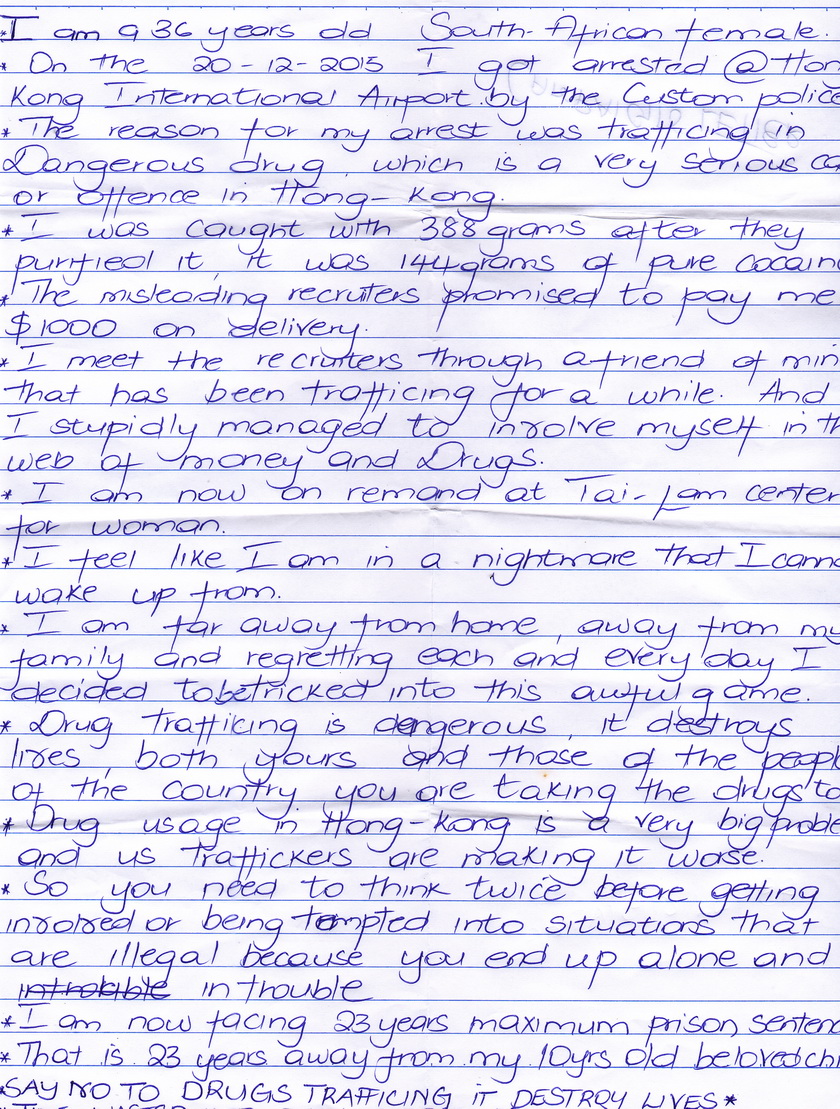 *I am a 36 years old South-African female.
* On the 20-12-2015 I got arrested @ Hon
Kong International Airport by the Custom police
* The reason for my arrest was trafficing in
Dangerous drug, which is a very serious ca
or offence in Hong-Kong.
* I was caught with 388 grams after they
purified it, it was 144grams of pure cocain
* The misleading recruiters promised to pay me
$1000 on delivery.
* I meet the recruiters through a friend of min
that has been trafficing for a while. And
I stupidly managed to involve myself in th
web of money and Drugs.
* I am now on remand at Tai-Lam center
for woman.
* I feel like I am in a nightmare that I canno
wake up from.
* I am far away from home, away from my
family and regretting each and every day I
decided to be tricked into this awful game.
* Drug Trafficing is dangerous, it destroys
lives, both yours and those of the peopl
of the country you are taking the drugs to
* Drug usage in Hong-Kong is a very big proble
and us Traffickers are making it worse.
* So you need to think twice before getting
involved or being tempted into situations that
are illegal because you end up alone and
in trouble
* I am now facing 23 years maximum prison sentenc
* That is 23 years away from my 10yrs old beloved chi
*SAY NO TO DRUGS TRAFFICING IT DESTROY LIVES*